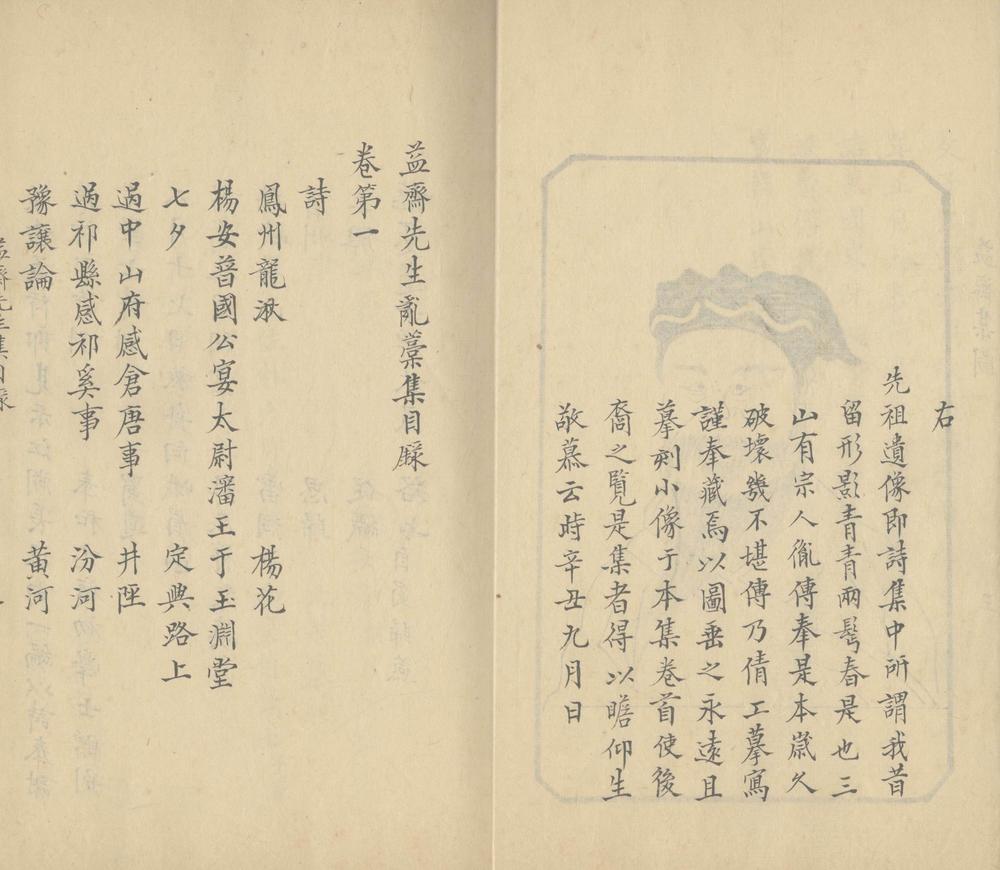 右
先祖遺像即詩集中所謂我昔
留形影青青兩鬂春是也三
山有宗人胤傳奉是本歲久
破壞幾不堪傳乃倩工摹寫
謹奉藏焉以圖垂之永遠且
摹刻小像于本集卷首使後
裔之覽是集者得以瞻仰生
敬慕云時辛丑九月日
益齋先生亂藁集目録
卷第一
詩
鳳州龍湫 楊花
楊安普國公宴太尉瀋王于玉淵堂
七夕 定興路上
過中山府感倉唐事 井陘
過祁縣感祁奚事 汾河
豫讓論 黃河
益齋先生集目錄